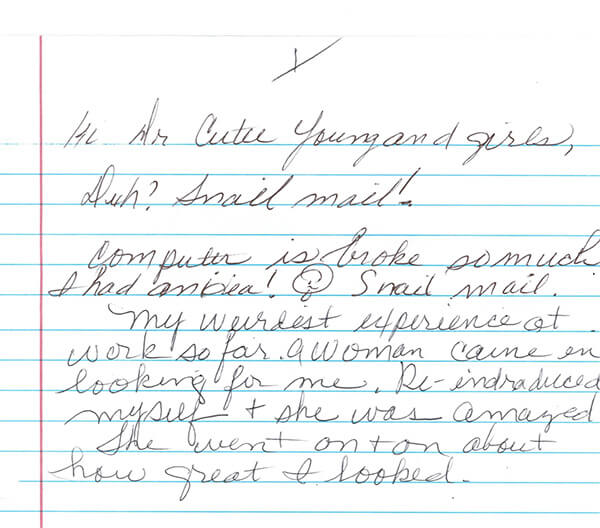 Hi Dr Cutie Youngand girls,
Duh? Snail mail!
Computer is broke so much
I had an idea! Snail mail.
My weirdest experience at
work so far. A woman came in
looking for me. Re-indraduced
myself + she was amazed
She went on + on about
how great I looked.